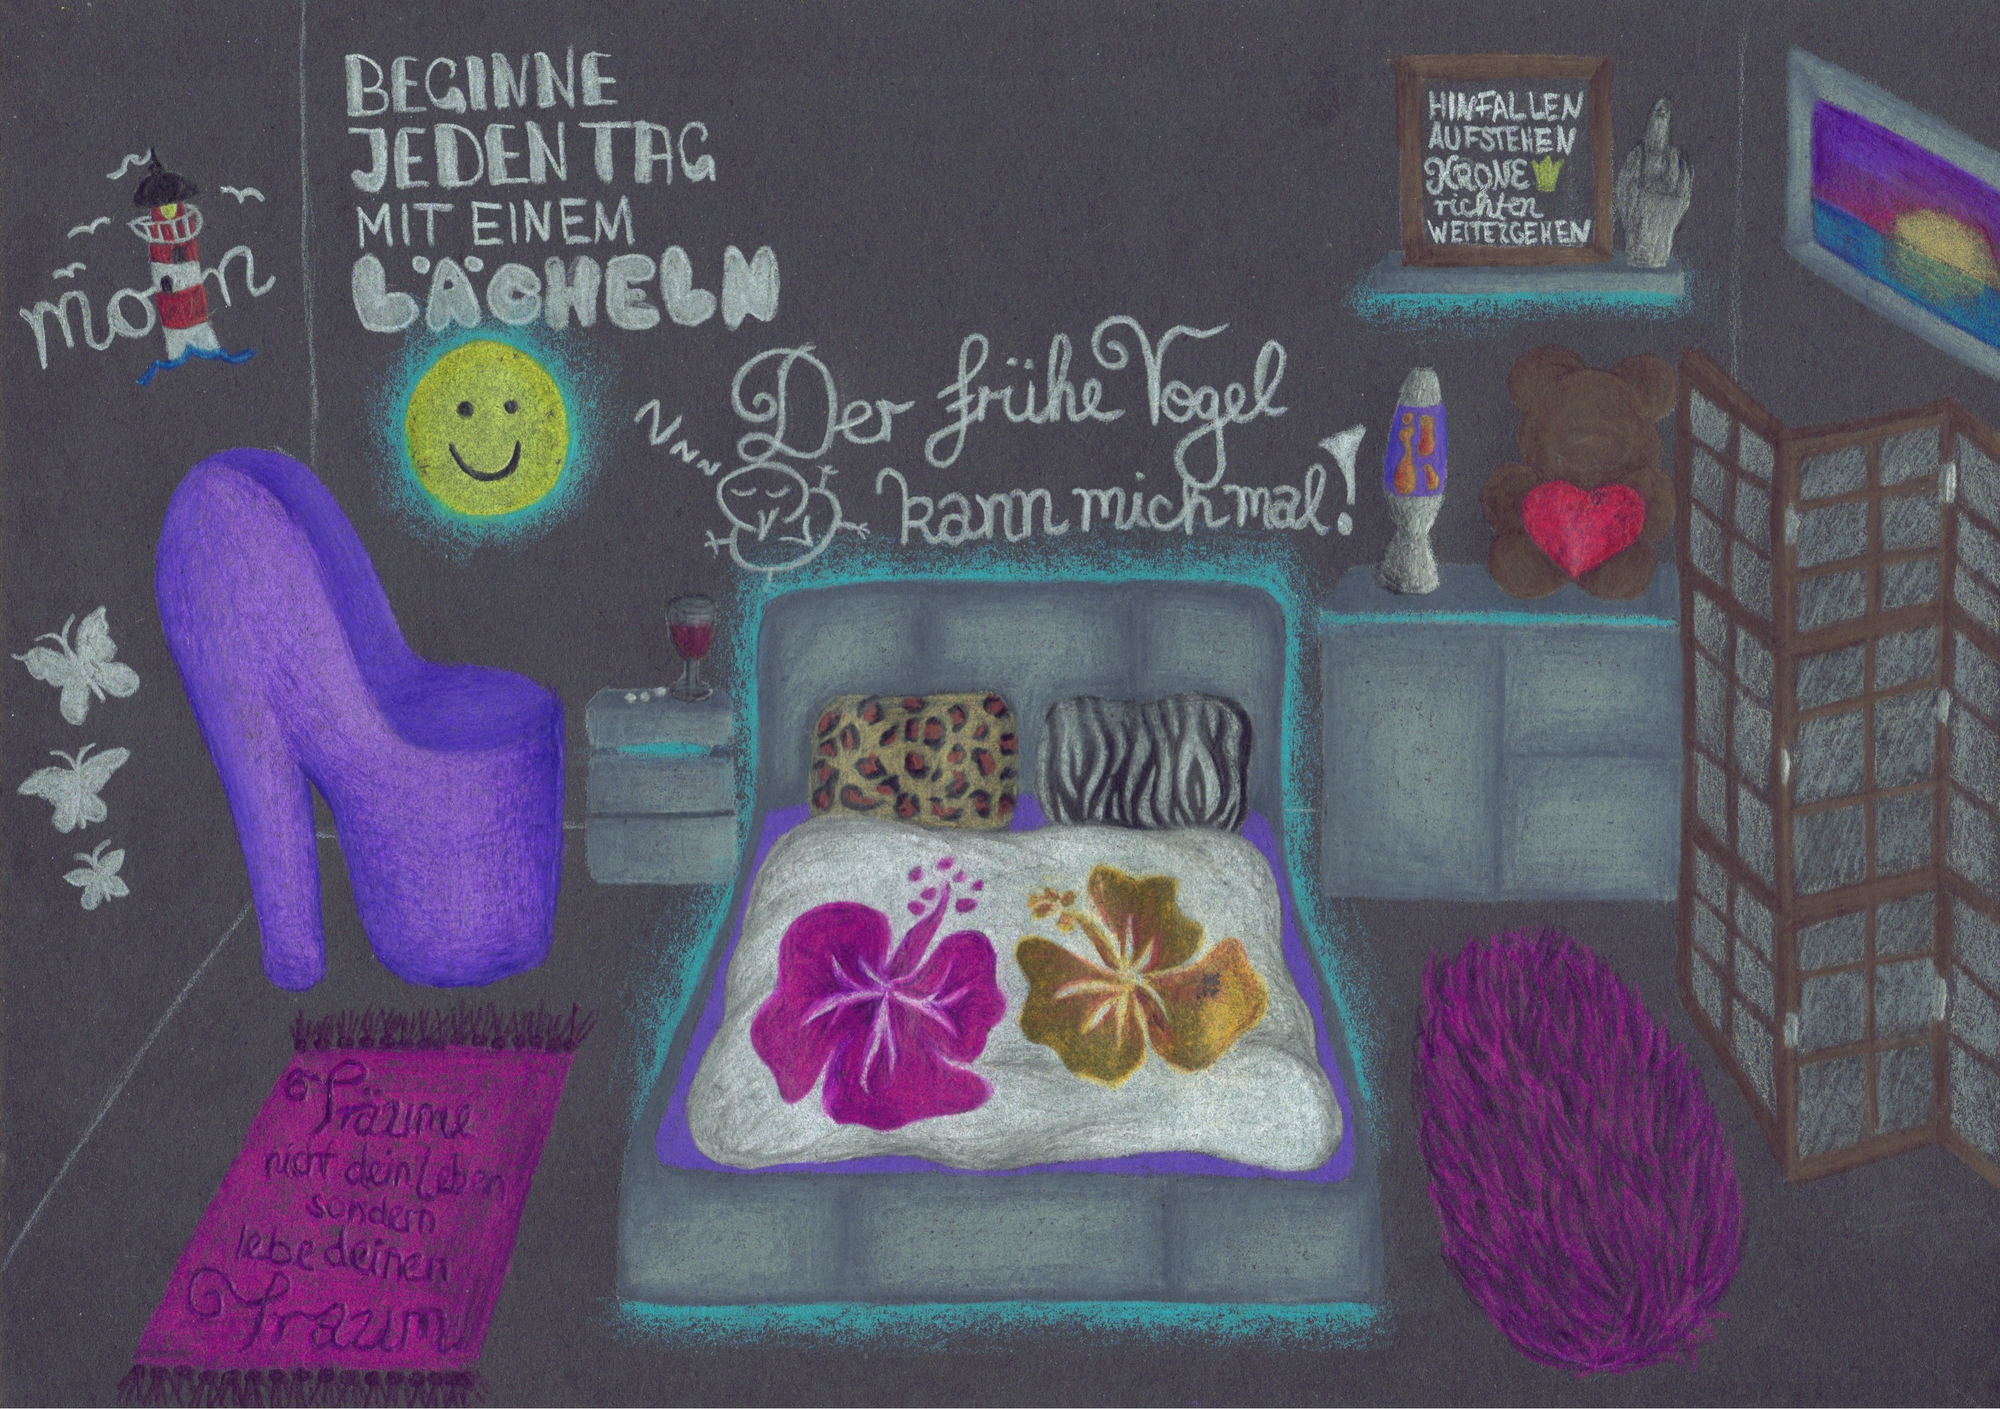 BEGINNE
JEDEN TAG
MIT EINEM
LÄCHELN
moin
HINFALLEN
AUFSTEHEN
KRONE
richten
WEITERGEHEN
Der frühe Vogel
kann mich mal!
Träume
nicht dein Leben
sondern
lebe deinen
Traum